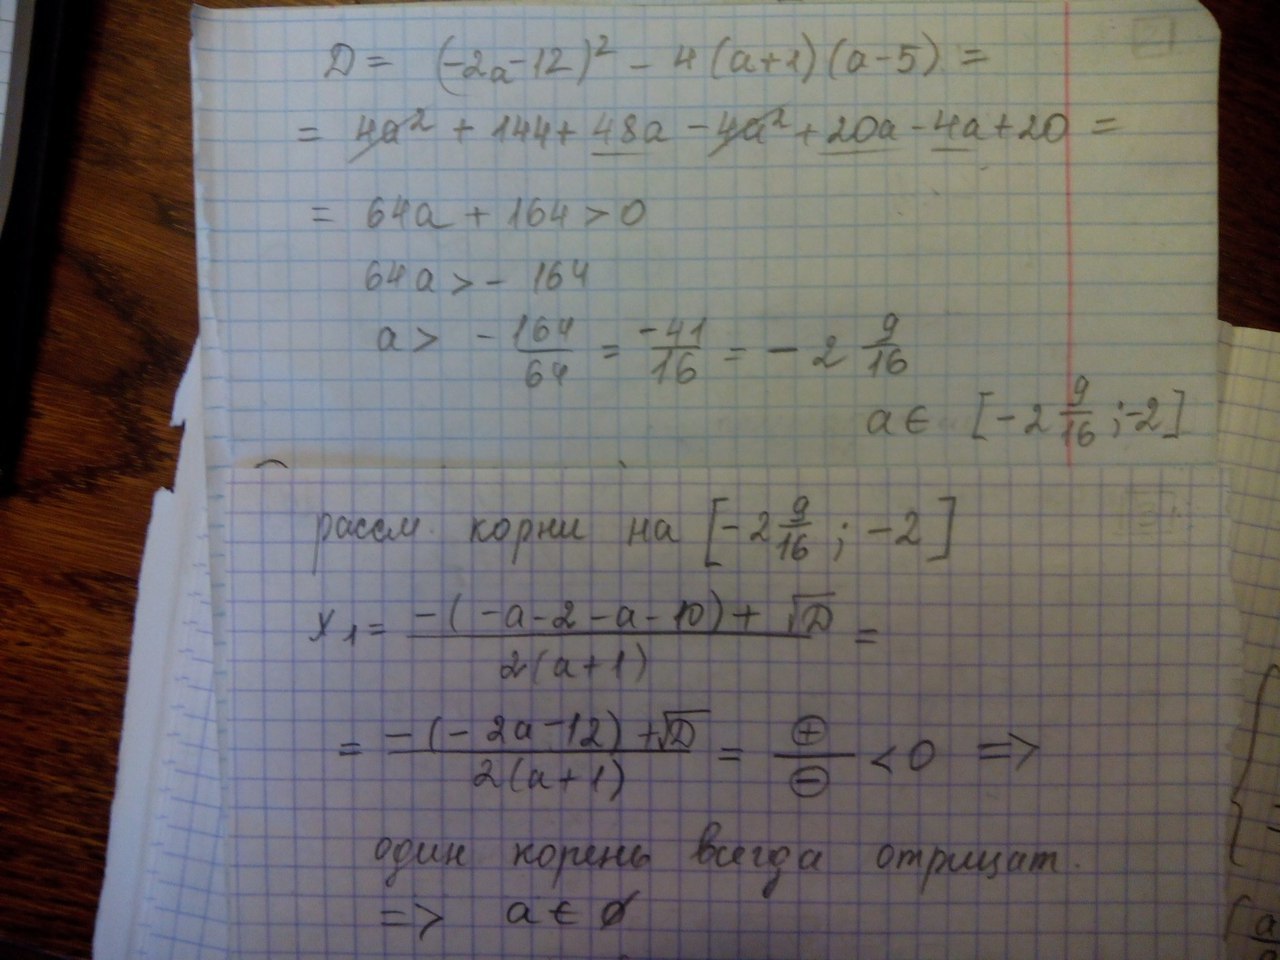 D = (-2a-12)² - 4(a+1)(a-5) =
= 4a² + 144 + 48a - 4a² + 20a - 4a + 20 =
= 64a + 164 > 0
64a > - 164
a > - 164/64 = -41/16 = - 2 9/16
a ∈ [-2 9/16 ; -2]
рассм. корни на [-2 9/16 ; -2]
x₁ = -(-a-2-a-10) + √D / 2(a+1) =
= -(-2a-12) + √D / 2(a+1) = ⊕/⊖ < 0 =>
один корень всегда отрицат.
=> a ∈ ∅